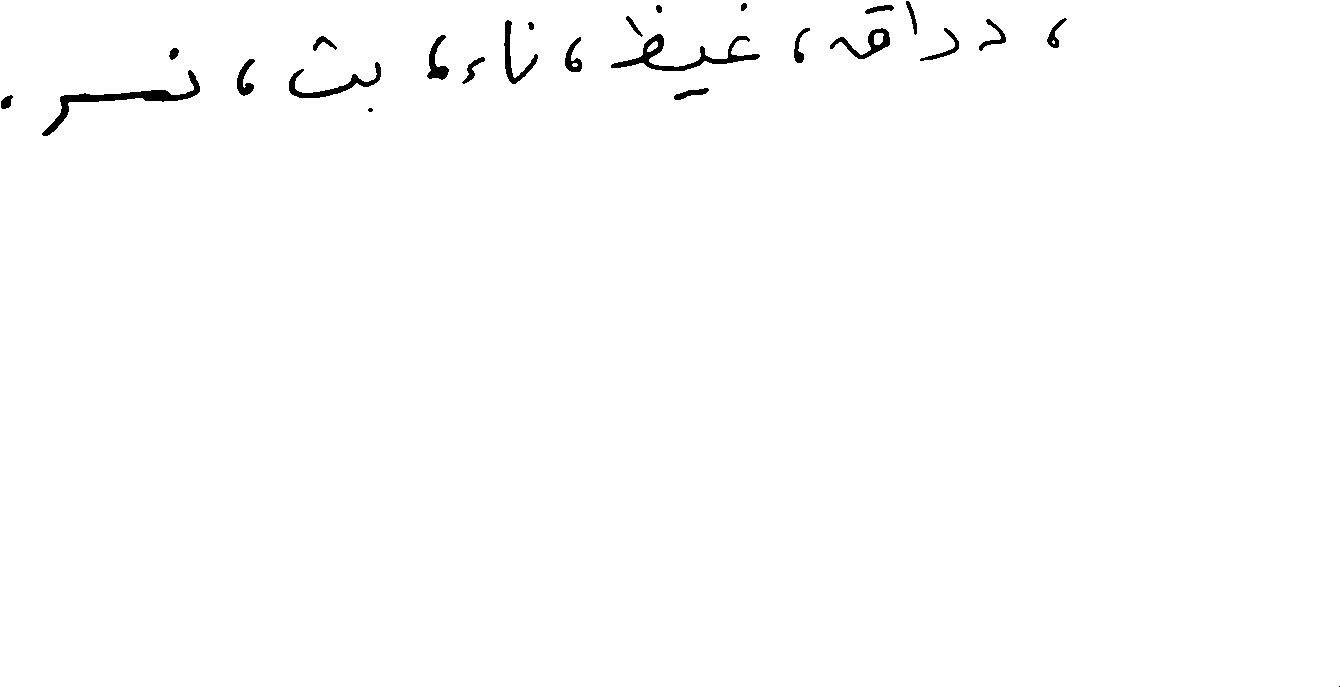 ، دراقه، غيظ، ناء، بث، نسر.